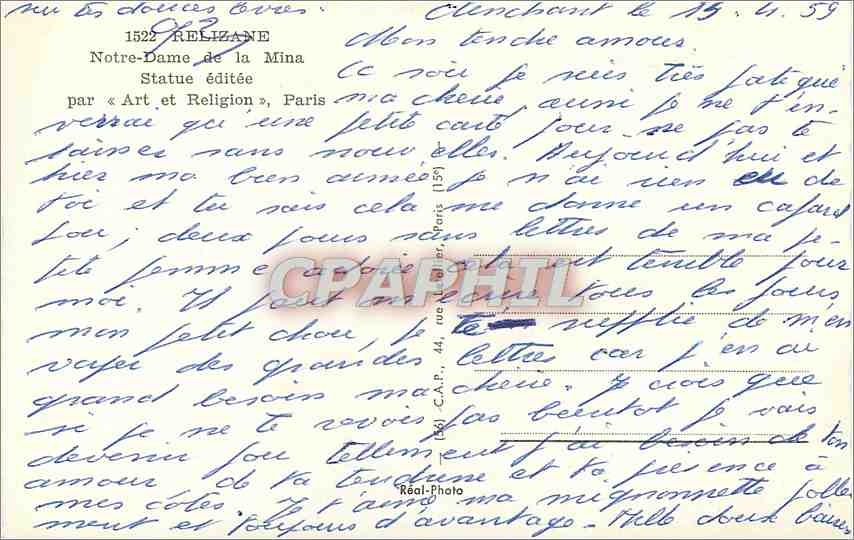 sur tes douces lèvres.
Clenchant le 15.4.59
1522 RELIZANE
Notre-Dame de la Mina
Statue éditée
par « Art et Religion », Paris
Mon tendre amour.
Ce soir je suis très fatigué
ma chérie, aussi je ne t'en-
verrai qu'une petite carte pour ne pas te
laisser sans nouvelles. Aujourd'hui et
hier ma bien aimée je n'ai rien eu de
toi et tu sais cela me donne un cafard
fou; deux jours sans lettres de ma pe-
tite femme adorée cela est terrible pour
moi. Il faut m'écrire tous les jours
mon petit chou, je te supplie de m'en
voyer des grandes lettres car j'en ai
grand besoin ma chérie. Je crois que
si je ne te revois pas bientot je vais
devenir fou tellement j'ai besoin de ton
amour de ta tendresse et ta présence à
mes côtés. Je t'aime ma mignonnette folle-
ment et toujours d'avantage. Mille doux baisers
(56) C.A.P., 44, rue Letellier, Paris (15e)
Réal-Photo
CPAPHIL